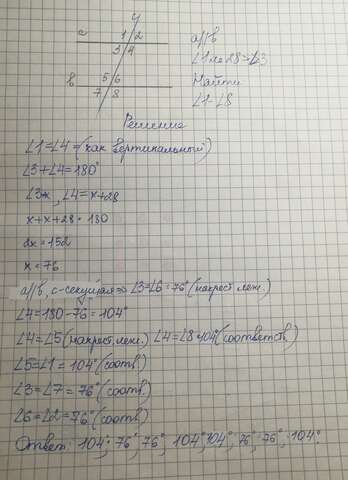 а 1 2 y
3 4
в 5 6
7 8
а//в
∠1 на 28 > ∠3
Найти
∠1-∠8
Решение
∠1=∠4=(как вертикальный)
∠3+∠4=180°
∠3x, ∠4=x+28
x+x+28=180
2x=152
x=76
а//в, с-секущая=>∠3=∠6=76°(накрест леж.)
∠4=180-76=104°
∠4=∠5(накрест.леж.) ∠4=∠8=104°(соответств)
∠5=∠1=104°(соотв.)
∠3=∠7=76°(соотв.)
∠6=∠2=76°(соотв)
Ответ: 104°; 76°, 76°, 104°, 104°, 76°, 76°, 104°.